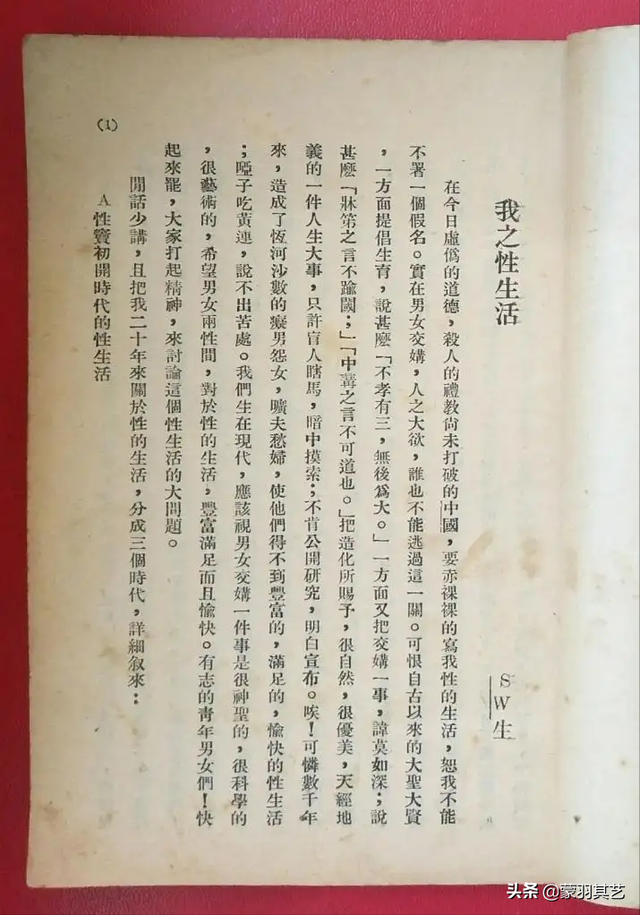 我之性生活
SW生
在今日虛僞的道德，殺人的禮敎尙未打破的中國，要赤裸裸的寫我性的生活，恕我不能
不署一個假名。實在男女交媾，人之大欲，誰也不能逃過這一關。可恨自古以來的大聖大賢
，一方面提倡生育，說甚麽「不孝有三，無後爲大。」一方面又把交媾一事，諱莫如深；說
甚麽「牀笫之言不踰閾；」「中冓之言不可道也。」把造化所賜予，很自然，很優美，天經地
義的一件人生大事，只許盲人瞎馬，暗中摸索；不肯公開研究，明白宣布。唉！可憐數千年
來，造成了恆河沙數的癡男怨女，曠夫愁婦，使他們得不到豐富的，滿足的，愉快的性生活
；啞子吃黃連，說不出苦處。我們生在現代，應該視男女交媾一件事是很神聖的，很科學的
，很藝術的，希望男女兩性間，對於性的生活，豐富滿足而且愉快。有志的靑年男女們！快
起來罷，大家打起精神，來討論這個性生活的大問題。
閒話少講，且把我二十年來關於性的生活，分成三個時代，詳細叙來：
A性竇初開時代的性生活
(1)
头条 @蒙羽其艺